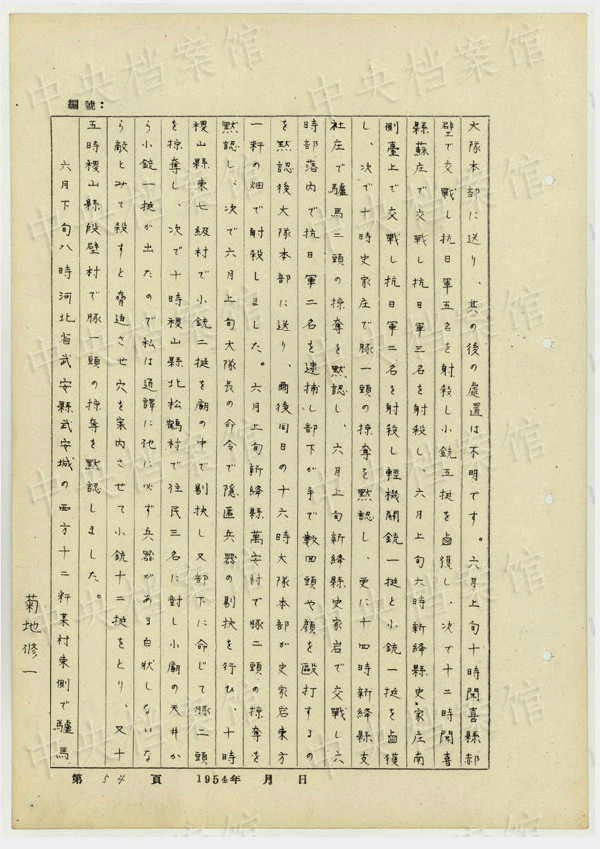 編號:
大隊本部に送り、其の後の處置は不明です。六月上旬十時聞喜縣郝
壁で交戰し抗日軍五名を射殺し小銃五挺を鹵獲し、次で十二時聞喜
縣蘇庄で交戰し抗日軍三名を射殺し、六月上旬六時新絳縣史家庄南
側臺上で交戰し抗日軍二名を射殺し輕機関銃一挺と小銃一挺を鹵獲
し、次で十時史家庄で豚一頭の掠奪を黙認し、更に十四時新絳縣支
社庄で驢馬三頭の掠奪を黙認し、六月上旬新絳縣史家岩で交戰し六
時部落内で抗日軍二名を逮捕し部下が手で數回頭や顔を毆打するの
を黙認後大隊本部に送り、爾後同日の十六時大隊本部が史家岩東方
一粁の畑で射殺しました。六月上旬新絳縣萬安村で豚二頭の掠奪を
黙認し、次で六月上旬大隊長の命令で隠匿兵器の剔抉を行ひ、十時
稷山縣東七級村で小銃二挺を廟の中で剔抉し又部下に命じて豚二頭
を掠奪し、次で十時稷山縣北松鶴村で住民三名に對し小廟の天井か
ら小銃一挺が出たので私は通譯に他に必ず兵器がある白狀しないな
ら敵とみて殺すと脅迫させ穴を案内させて小銃十二挺をとり、又十
五時稷山縣段壁村で豚一頭の掠奪を黙認しました。
六月下旬八時河北省武安縣武安城の西方十二粁某村東側で驢馬
菊地修一
第 54 頁 1954年 月 日
中央档案馆